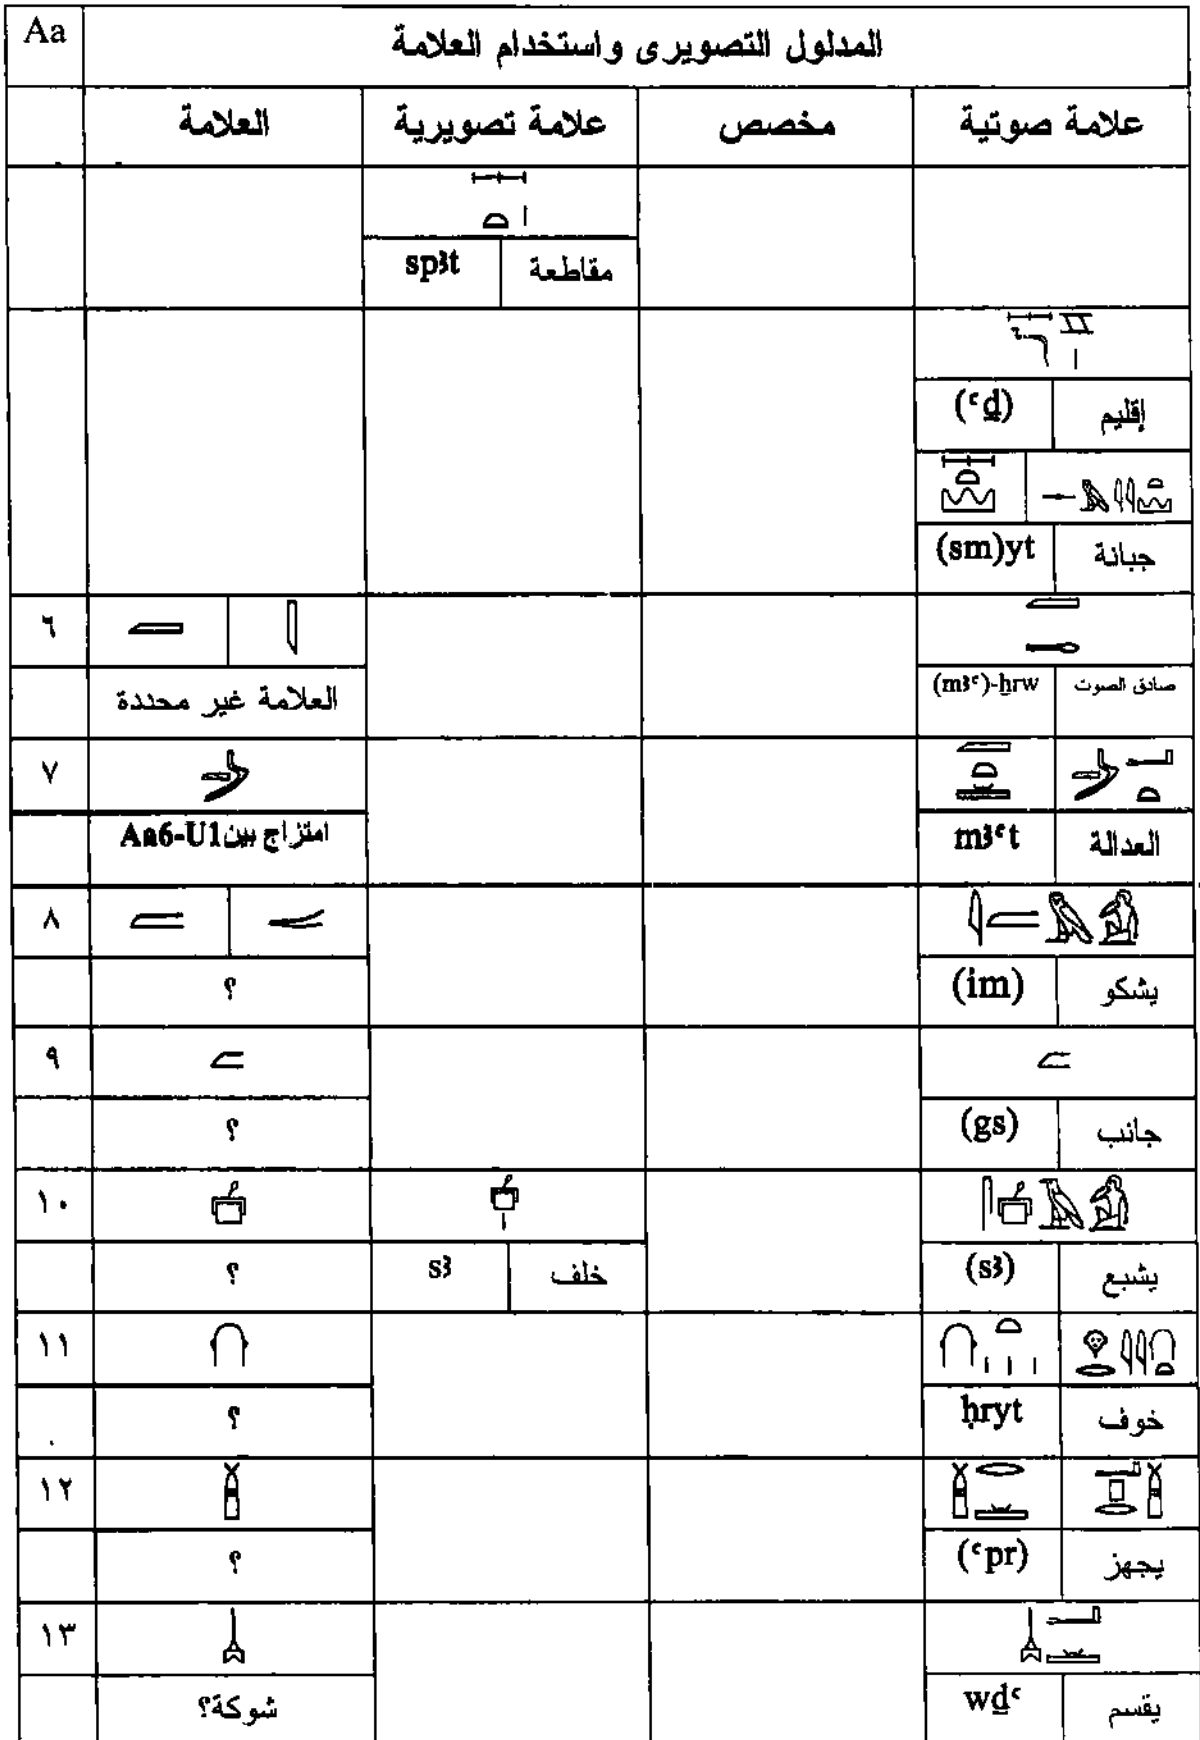 Aa المدلول التصويرى واستخدام العلامة
العلامة علامة تصويرية مخصص علامة صوتية
spꜣt مقاطعة
(ꜥḏ) إقليم
(sm)yt جبانة
٦
العلامة غير محددة (mꜣꜥ)-ḫrw صادق الصوت
٧
امتزاج بين Aa6-U1 mꜣꜥt العدالة
٨
؟ (im) يشكو
٩
؟ (gs) جانب
١٠
؟ sꜣ خلف (sꜣ) يشبع
١١
؟ ḥryt خوف
١٢
؟ (ꜥpr) يجهز
١٣
شوكة؟ wḏꜥ يقسم